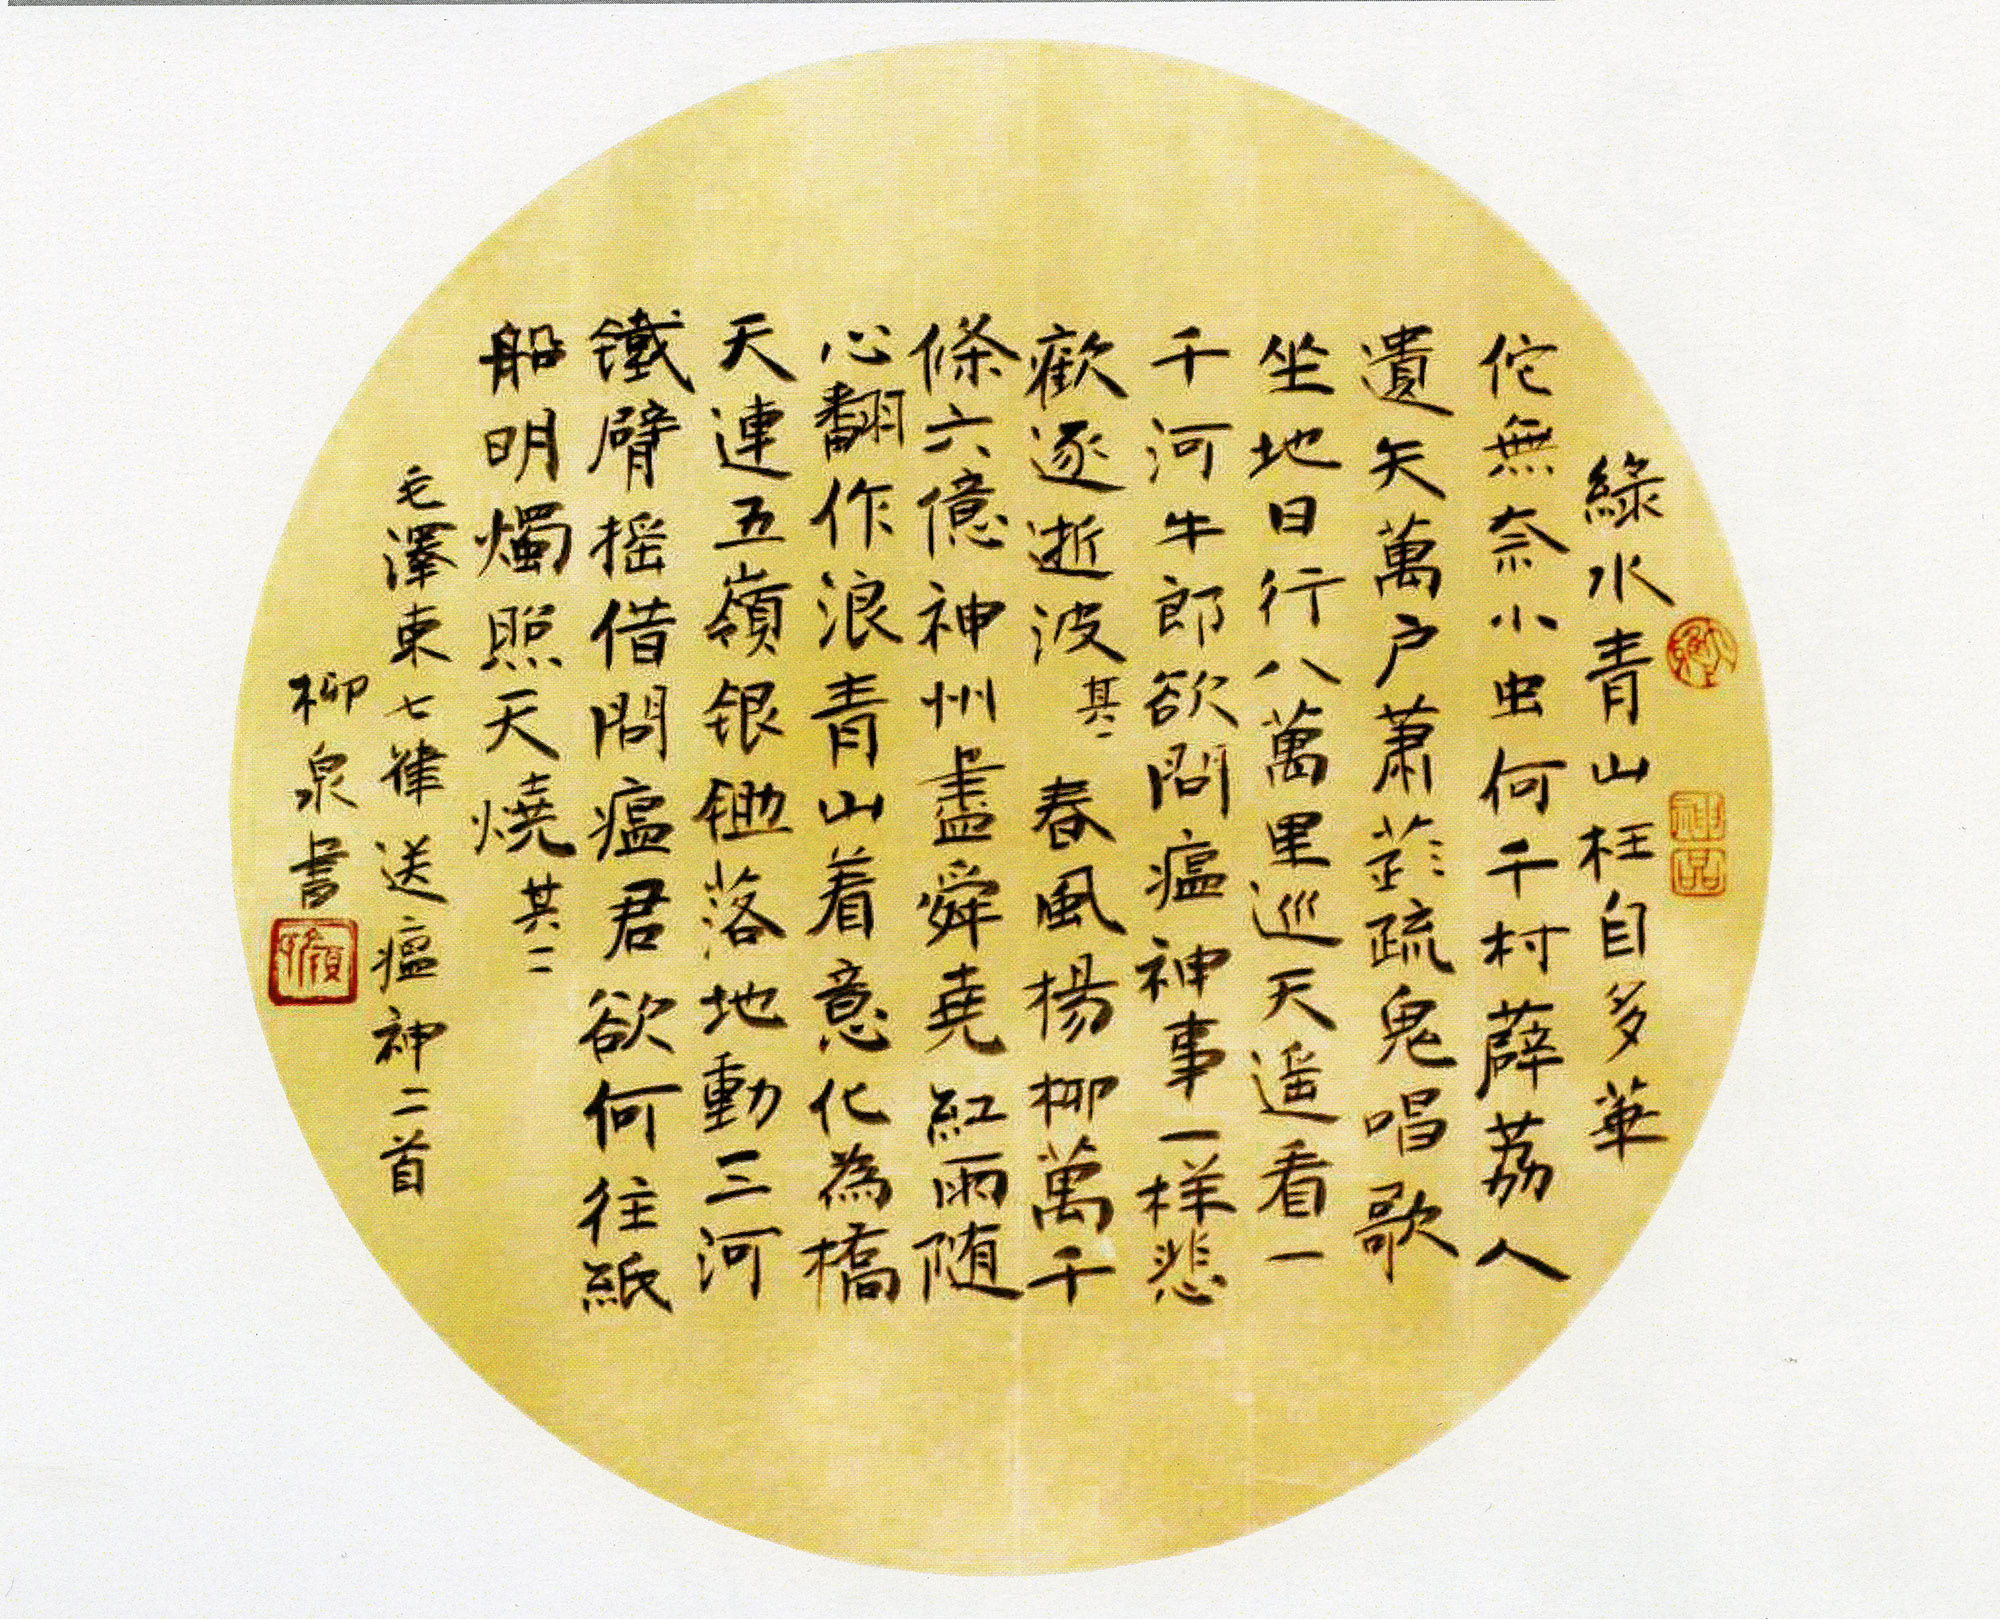 綠水青山枉自多華
佗無奈小虫何千村薜荔人
遺矢萬户蕭疏鬼唱歌
坐地日行八萬里巡天遥看一
千河牛郎欲問瘟神事一样悲
歡逐逝波其一 春風楊柳萬千
條六億神州盡舜堯紅雨随
心翻作浪青山着意化為橋
天連五嶺银锄落地動三河
鐵臂摇借問瘟君欲何往紙
船明燭照天燒其二
毛澤東七律送瘟神二首
柳泉書
神品